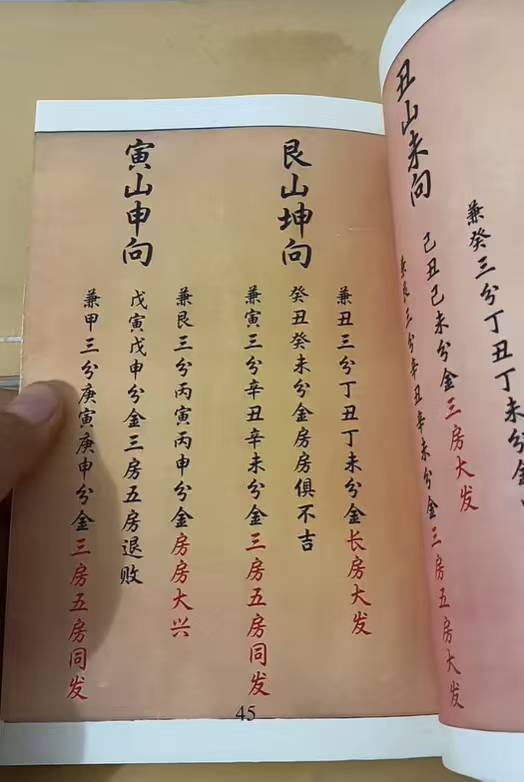 丑山未向
兼癸三分丁丑丁未分金
己丑己未分金三房大发
兼艮三分辛丑辛未分金三房五房大发
艮山坤向
兼丑三分丁丑丁未分金长房大发
癸丑癸未分金房房俱不吉
兼寅三分辛丑辛未分金三房五房同发
寅山申向
兼艮三分丙寅丙申分金房房大兴
戊寅戊申分金三房五房退败
兼甲三分庚寅庚申分金三房五房同发
45